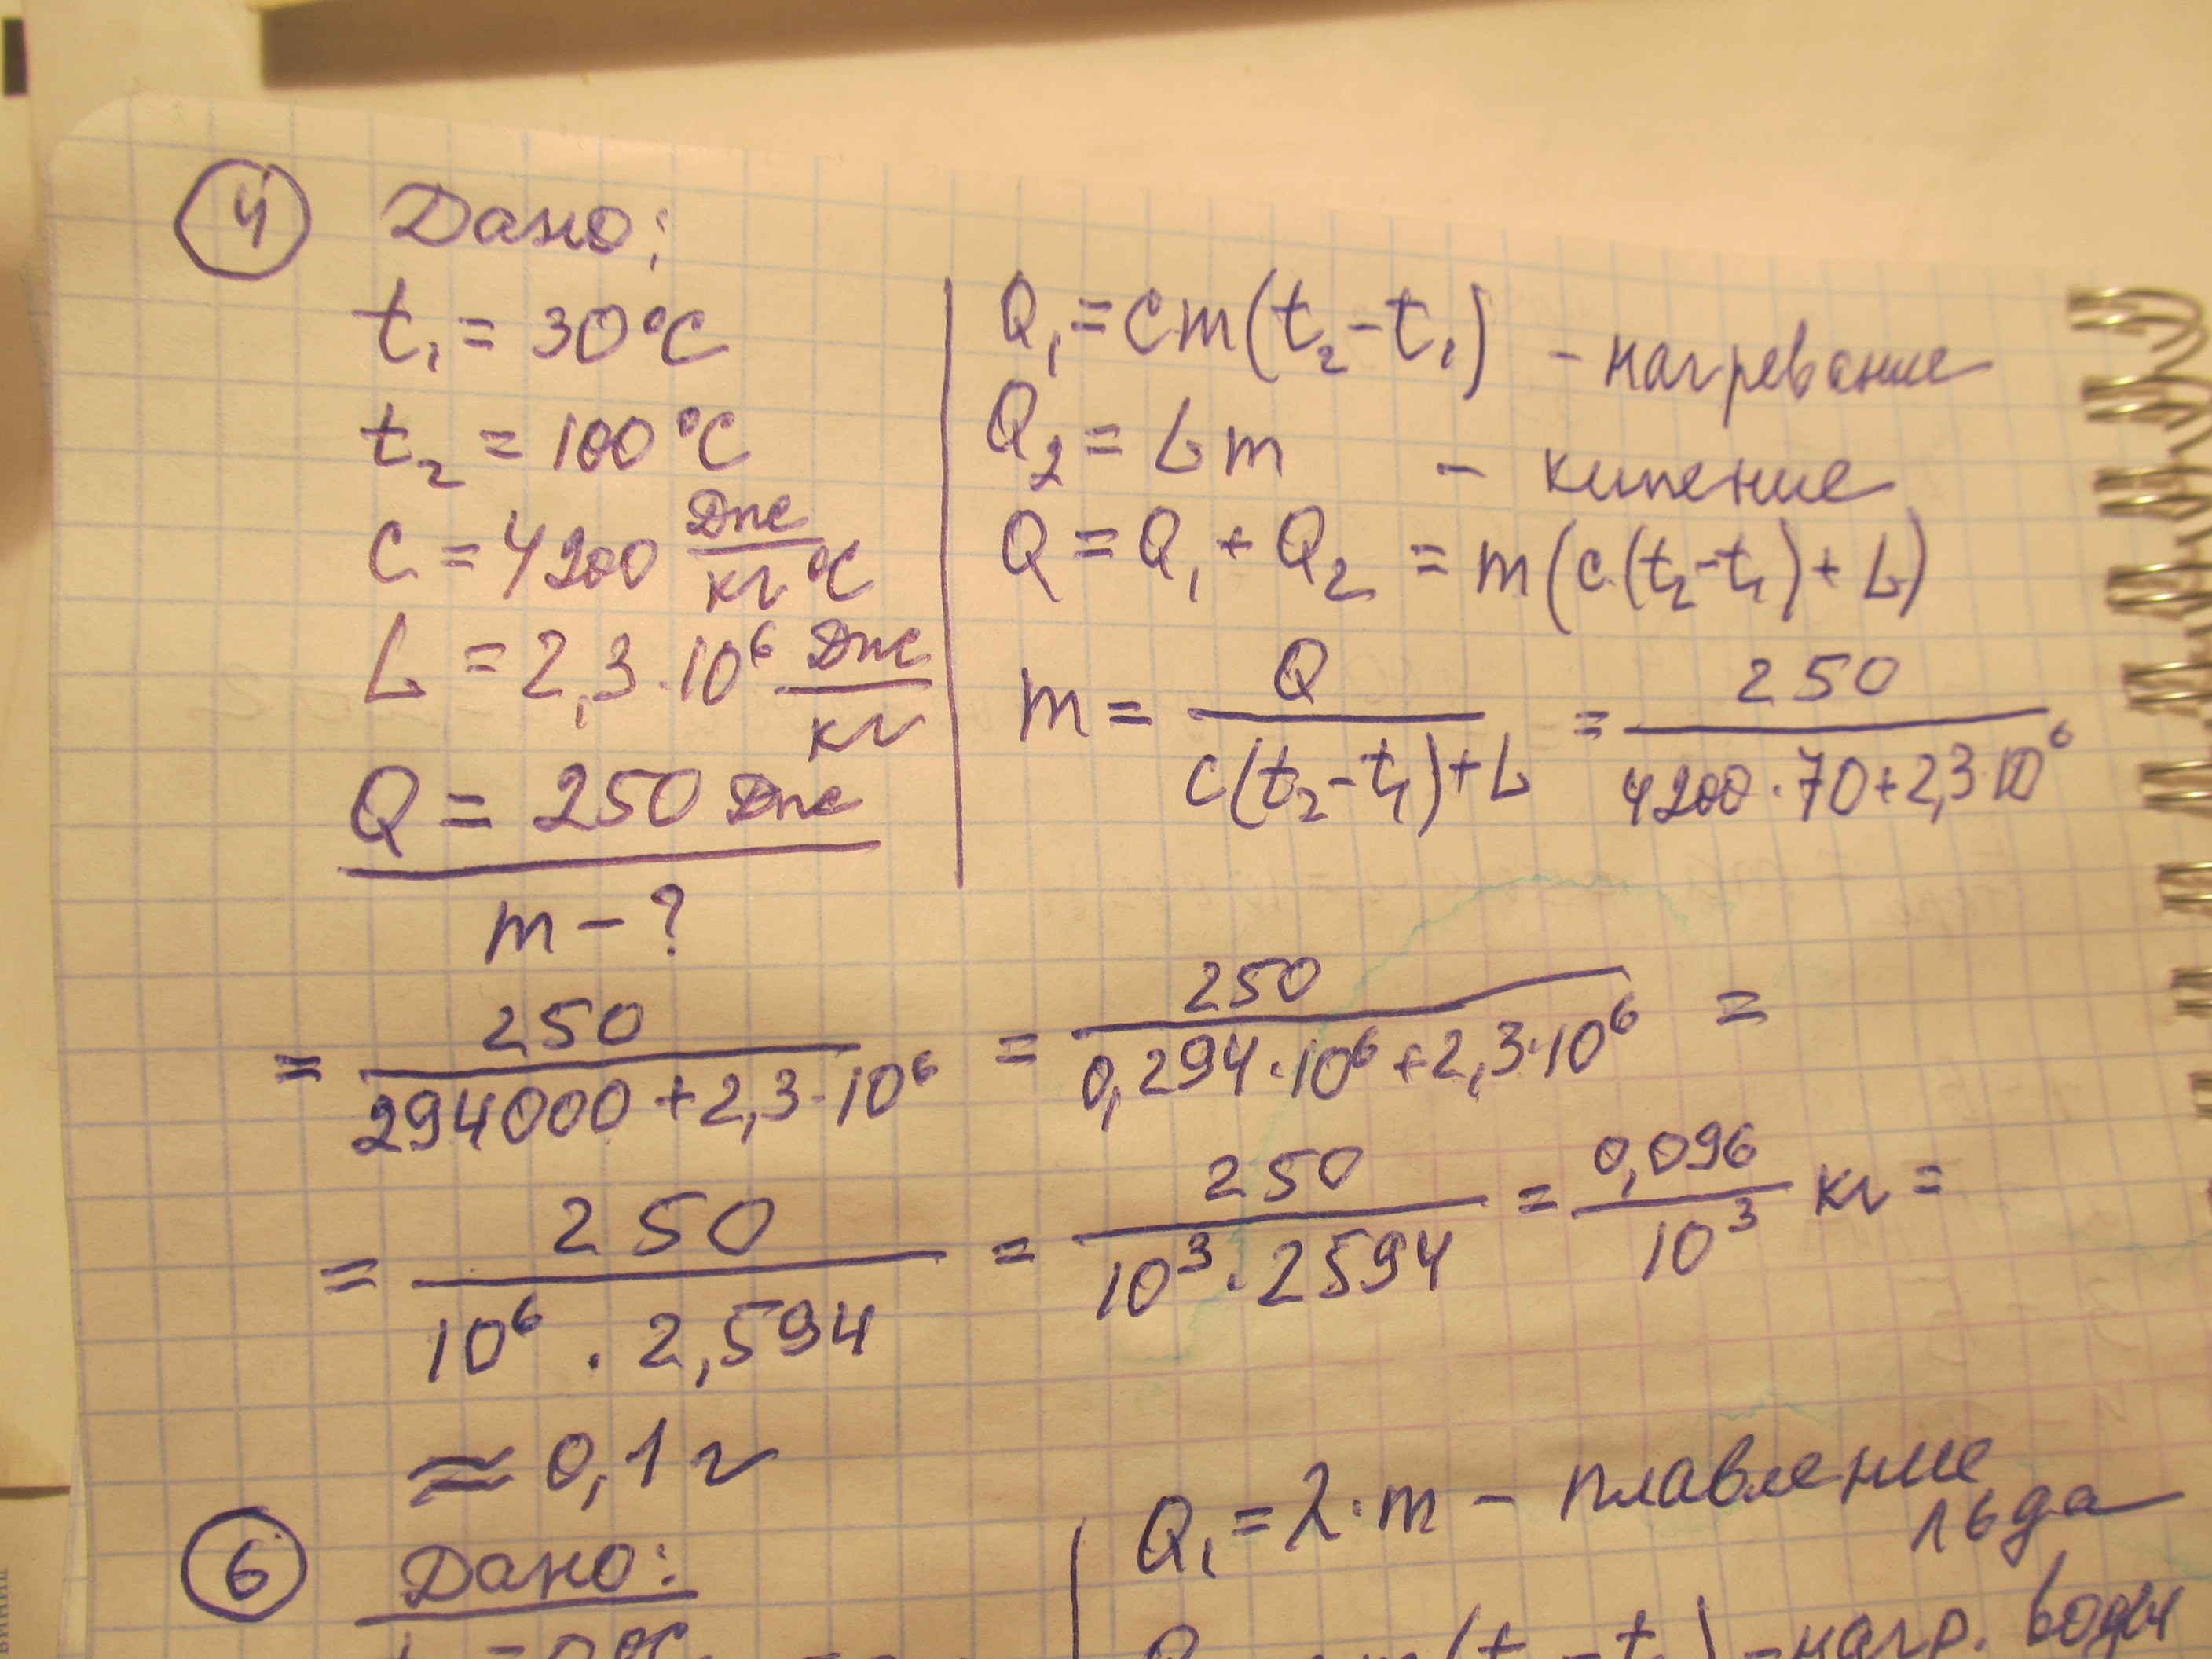 4 Дано:
t₁ = 30°C
t₂ = 100°C
c = 4200 Дж/кг°C
L = 2,3·10⁶ Дж/кг
Q = 250 Дж
m – ?
Q₁ = cm(t₂-t₁) – нагревание
Q₂ = Lm – кипение
Q = Q₁ + Q₂ = m(c(t₂-t₁)+L)
m = Q/(c(t₂-t₁)+L) = 250/(4200·70+2,3·10⁶)
= 250/(294000+2,3·10⁶) = 250/(0,294·10⁶+2,3·10⁶) =
= 250/(10⁶·2,594) = 250/(10³·2594) = 0,096/10³ кг =
≈ 0,1 г
6 Дано:
Q₁ = λ·m – плавление
льда
– нагр. воды